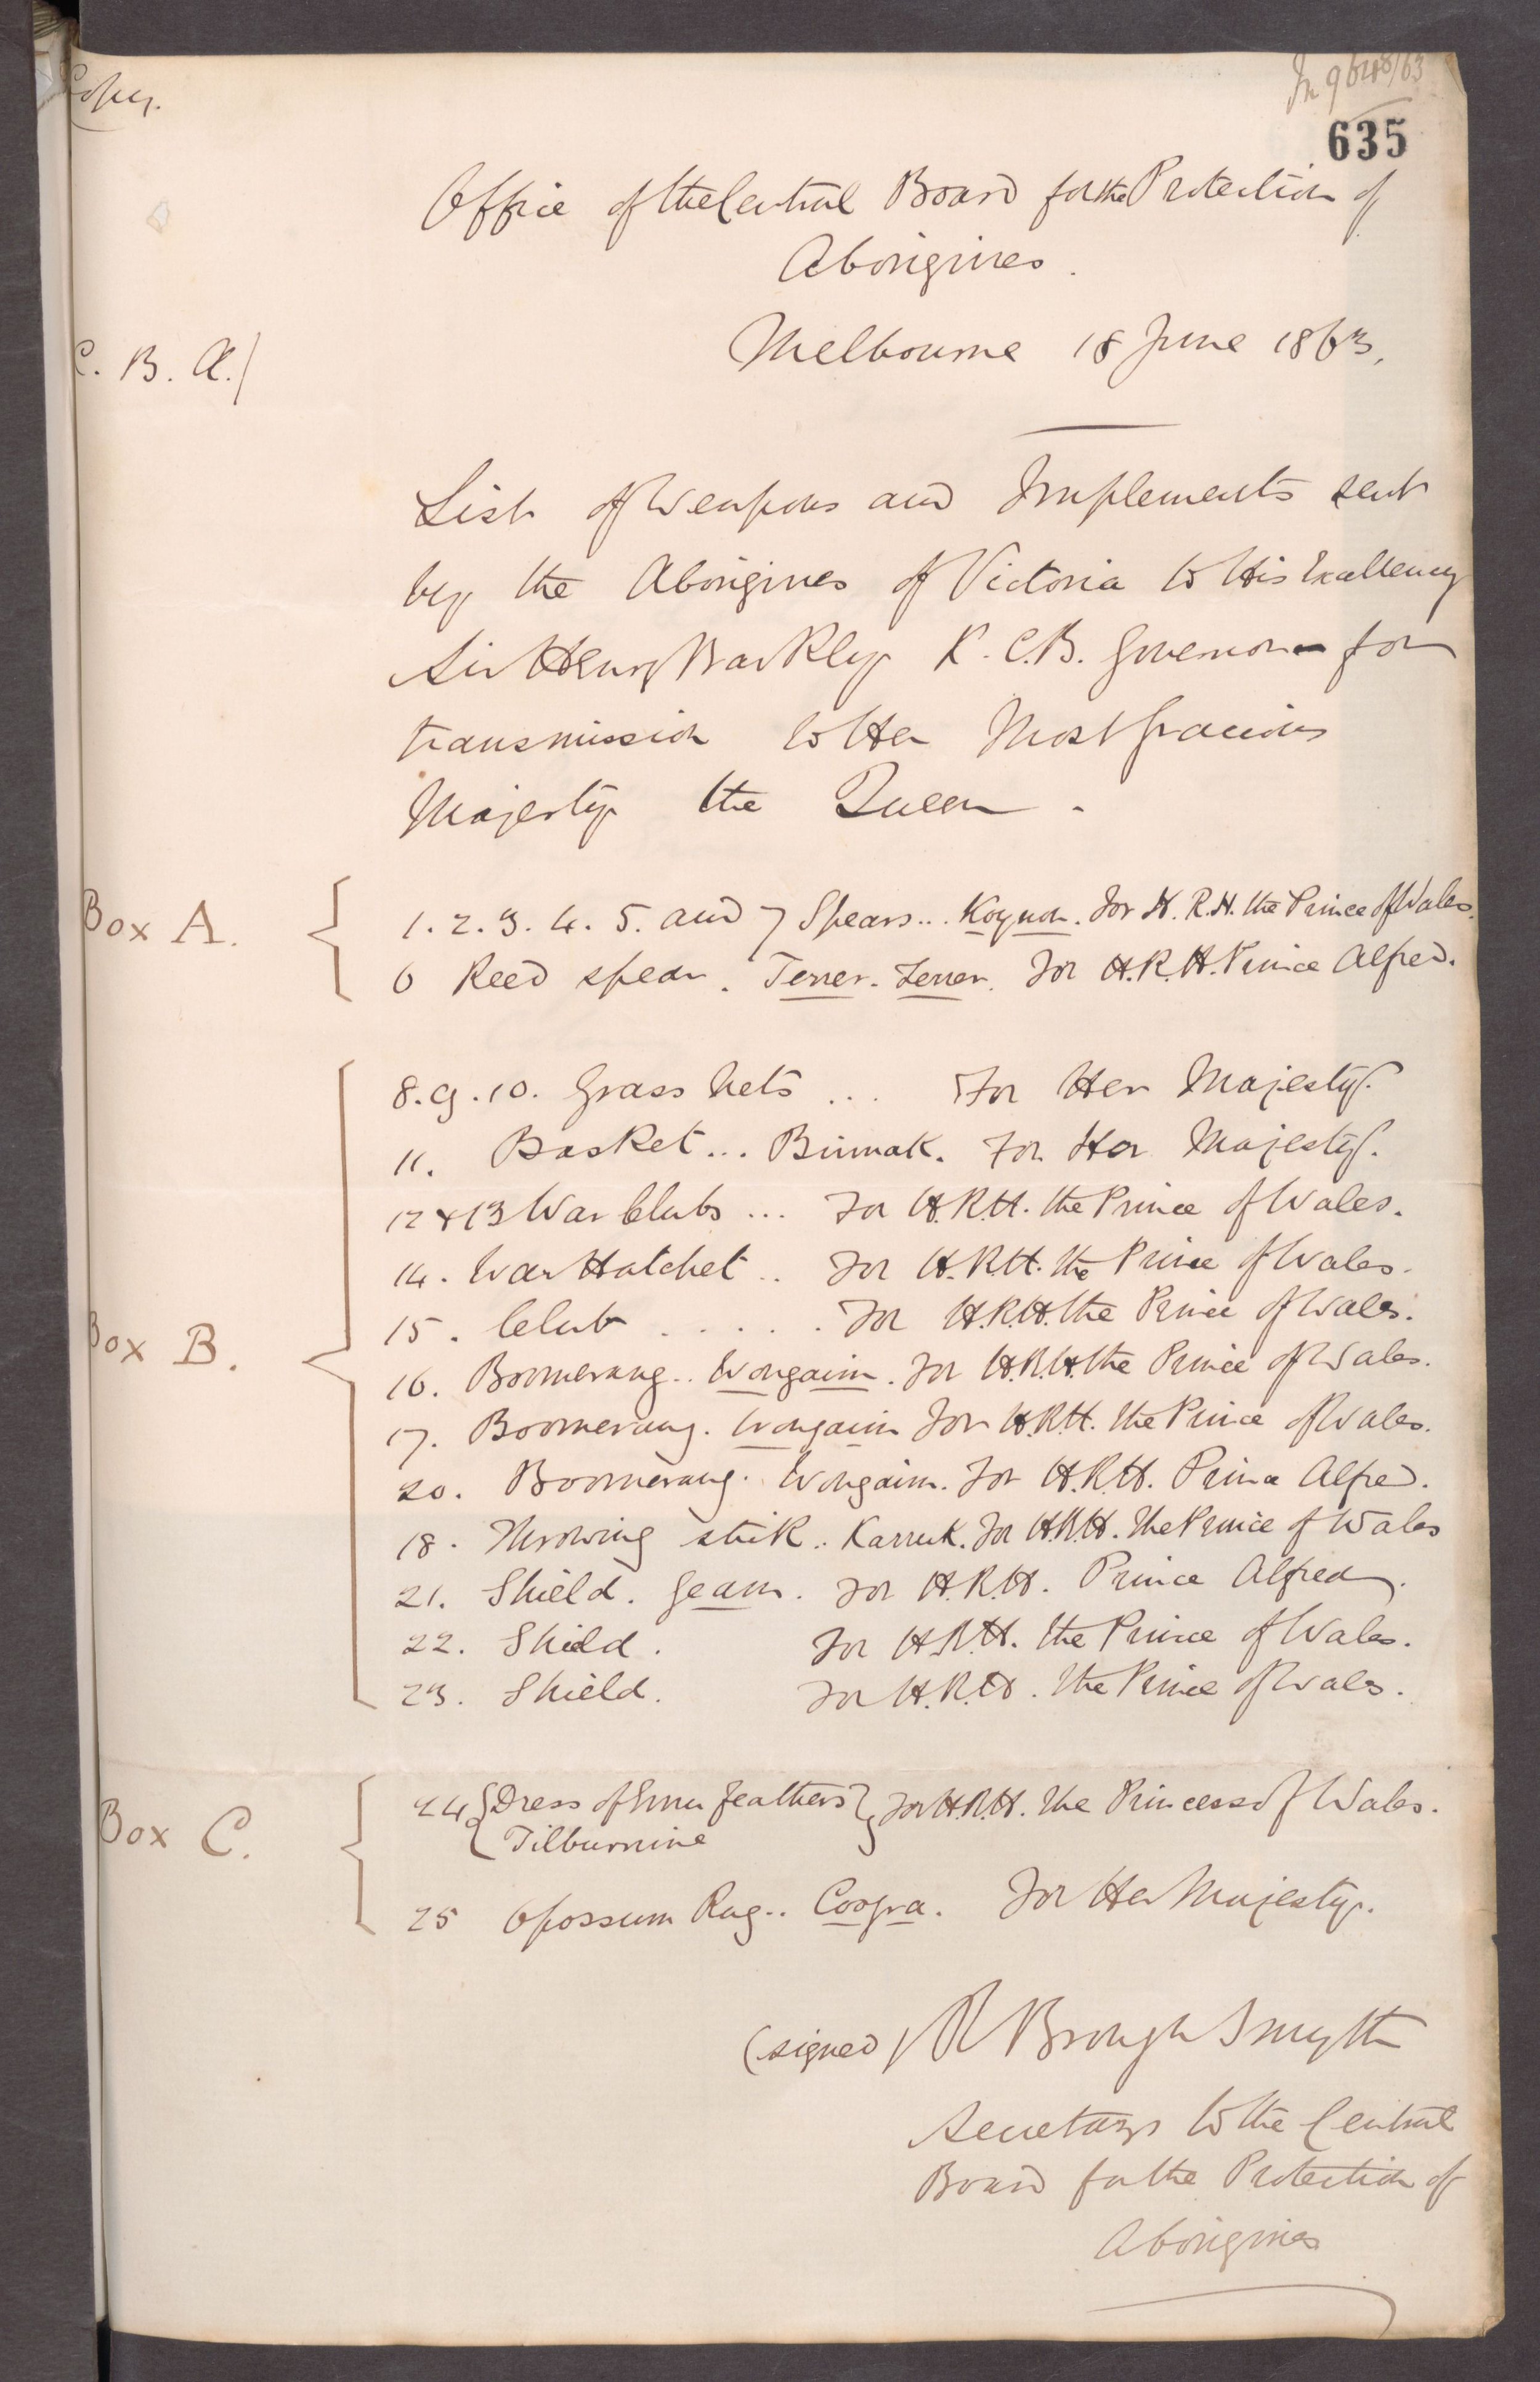 Copy.
In 9648/63
635
Office of the Central Board for the Protection of
Aborigines.
Melbourne 18 June 1863,
C. B. A./
List of Weapons and Implements sent
by the Aborigines of Victoria to His Excellency
Sir Henry Barkly K.C.B. Governor for
transmission to Her Most Gracious
Majesty the Queen.
Box A.
1. 2. 3. 4. 5. and 7 Spears... Koyun. For H.R.H. the Prince of Wales.
6 Reed spear. Terrer-Terrer. For H.R.H. Prince Alfred.
Box B.
8. 9. 10. Grass Nets ... For Her Majesty.
11. Basket... Binnak. For Her Majesty.
12 & 13 War Clubs ... For H.R.H. the Prince of Wales.
14. War Hatchet .. For H.R.H. the Prince of Wales.
15. Club ...... For H.R.H. the Prince of Wales.
16. Boomerang.. Wongaim. For H.R.H. the Prince of Wales.
17. Boomerang. Wongaim For H.R.H. the Prince of Wales.
20. Boomerang. Wongaim. For H.R.H. Prince Alfred.
18. Throwing stick.. Karruk. For H.R.H. the Prince of Wales
21. Shield. Geam. For H.R.H. Prince Alfred.
22. Shield. For H.R.H. the Prince of Wales.
23. Shield. For H.R.H. the Prince of Wales.
Box C.
24 {Dress of Emu feathers} For H.R.H. the Princess of Wales.
Tilburnine
25 Opossum Rug.. Coogra. For Her Majesty.
(signed) R Brough Smyth
Secretary to the Central
Board for the Protection of
Aborigines